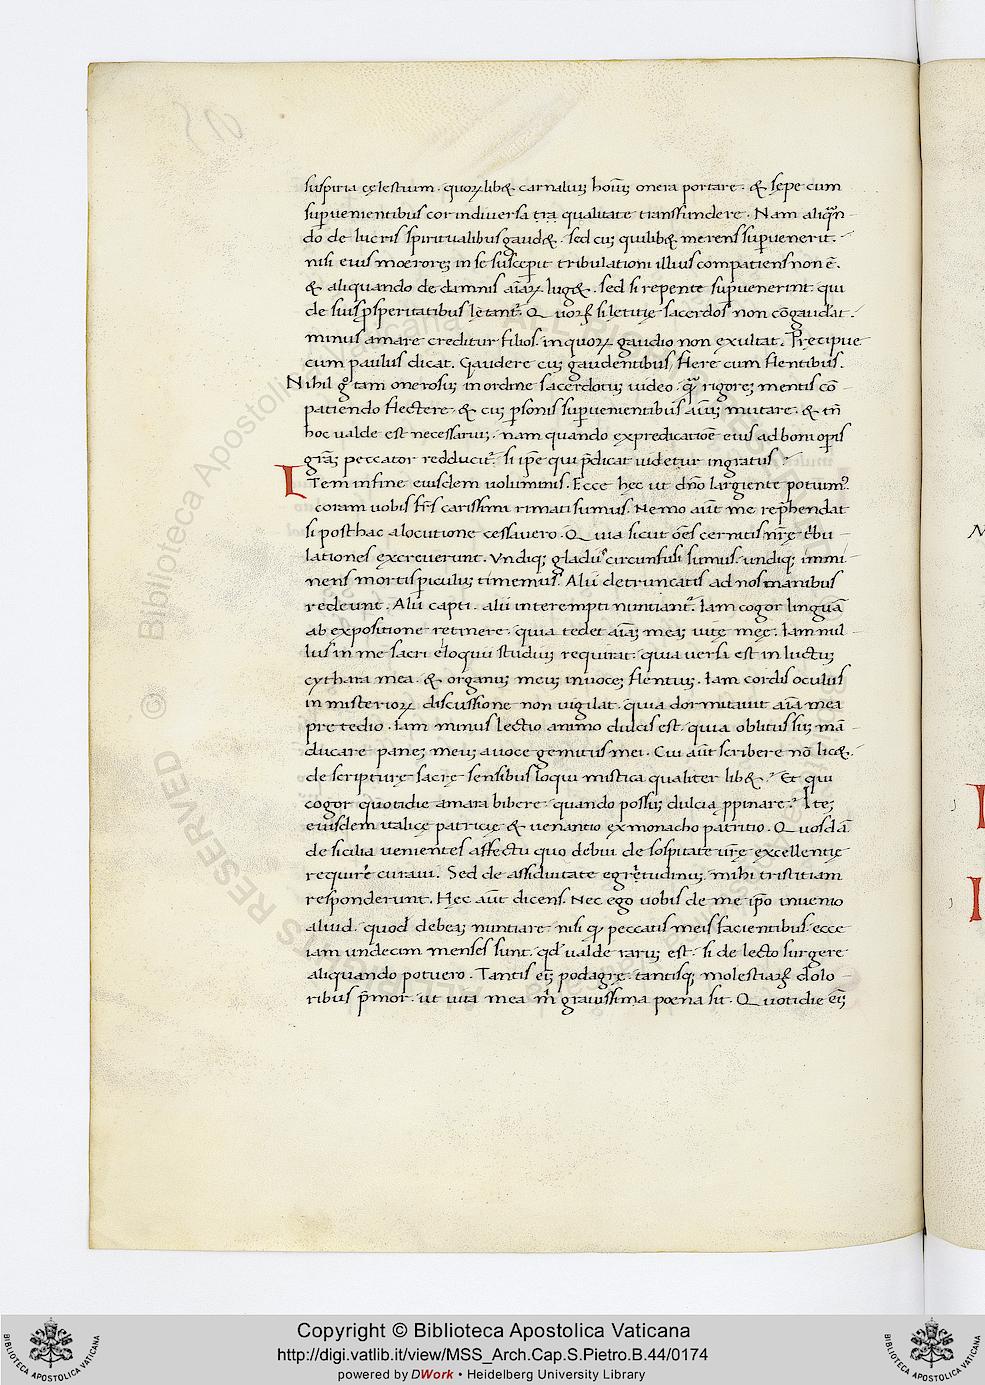 suspiria cęlestium. quoꝝlibꝫ carnaliuꝫ hoiuꝫ onera portare. & sepe cum
superuenientibus cor indiuersa tra qualitate transfundere. Nam aliqñ-
do de lucris spiritualibus gaudꝫ. sed cuꝫ quilibꝫ merens superuenerit.
nisi eius moeroreꝫ in se susceperit tribulationi illius compatiens non ē.
& aliquando de damnis aīaꝝ lugꝫ. sed si repente superuenerint qui
de suis prosperitatibus lętant᷑. Quoꝝ si letitię sacerdos non cōgaudat.
minus amare creditur filios. in quoꝝ gaudio non exultat. Pręcipue
cum paulus dicat. Gaudere cuꝫ gaudentibus/ flere cum flentibus.
Nihil gͦ tam onerosuꝫ in ordine sacerdotuꝫ uideo. qꝫ rigoreꝫ mentis cō-
patiendo flectere. & cuꝫ personis superuenientibus aīuꝫ mutare. & tñ
hoc ualde est necessariuꝫ. nam quando ex predicatiōe eius ad boni operis
grāꝫ peccator redducit᷑. si ipse qui pdicat uidetur ingratus.
ITem in fine eiusdem uoluminis. Ecce hęc ut dn̄o largiente potuim᷒.
coram uobis frs̄ carissimi rimati sumus. Nemo aūt me rephendat
si posthac a locutione cessauero. Quia sicut oēs cernitis nr̄ę tribu-
lationes excreuerunt. Vndiqꝫ gladiis circunfusi sumus. undiqꝫ immi-
nens mortis piculuꝫ timemus. Alii detruncatis ad nos manibus
redeunt. Alii capti. alii interempti nuntiant᷑. Iam cogor linguā
ab expositione retinere. quia tedet aīaꝫ meaꝫ uitę męę. Iam nul-
lus in me sacri eloquii studiuꝫ requirat. quia uersa est in luctuꝫ
cythara mea. & organuꝫ meuꝫ in uoceꝫ flentiuꝫ. Iam cordis oculus
in misterioꝝ discussione non uigilat. quia dormitauit aīa mea
pre tedio. Iam minus lectio animo dulcis est. quia oblitus suꝫ mā-
ducare paneꝫ meuꝫ a uoce gemitus mei. Cui aūt scribere nō licꝫ.
de scripturę sacrę sensibus loqui mistica qualiter libꝫ? Et qui
cogor quotidie amara bibere. quando possuꝫ dulcia ppinare? Iteꝫ
eiusdem italicę patricię & uenantio ex monacho patritio. Quosdā
de sicilia uenientes affectu quo debui de sospitate ur̄ę excellentię
requirere curaui. Sed de assiduitate egrętudinuꝫ. mihi tristitiam
responderunt. Hęc aūt dicens. Nec ego uobis de me ipo inuenio
aliud. quod debeaꝫ nuntiare. nisi qꝫ peccatis meis facientibus. ecce
iam undecim menses sunt. qd̄ ualde raruꝫ est. si de lecto surgere
aliquando potuero. Tantis eiꝫ podagrę. tantisqꝫ molestiaꝝ dolo-
ribus pmor. ut uita mea m̄ grauissima poena sit. Quotidie eiꝫ
Copyright © Biblioteca Apostolica Vaticana
http://digi.vatlib.it/view/MSS_Arch.Cap.S.Pietro.B.44/0174
powered by DWork • Heidelberg University Library